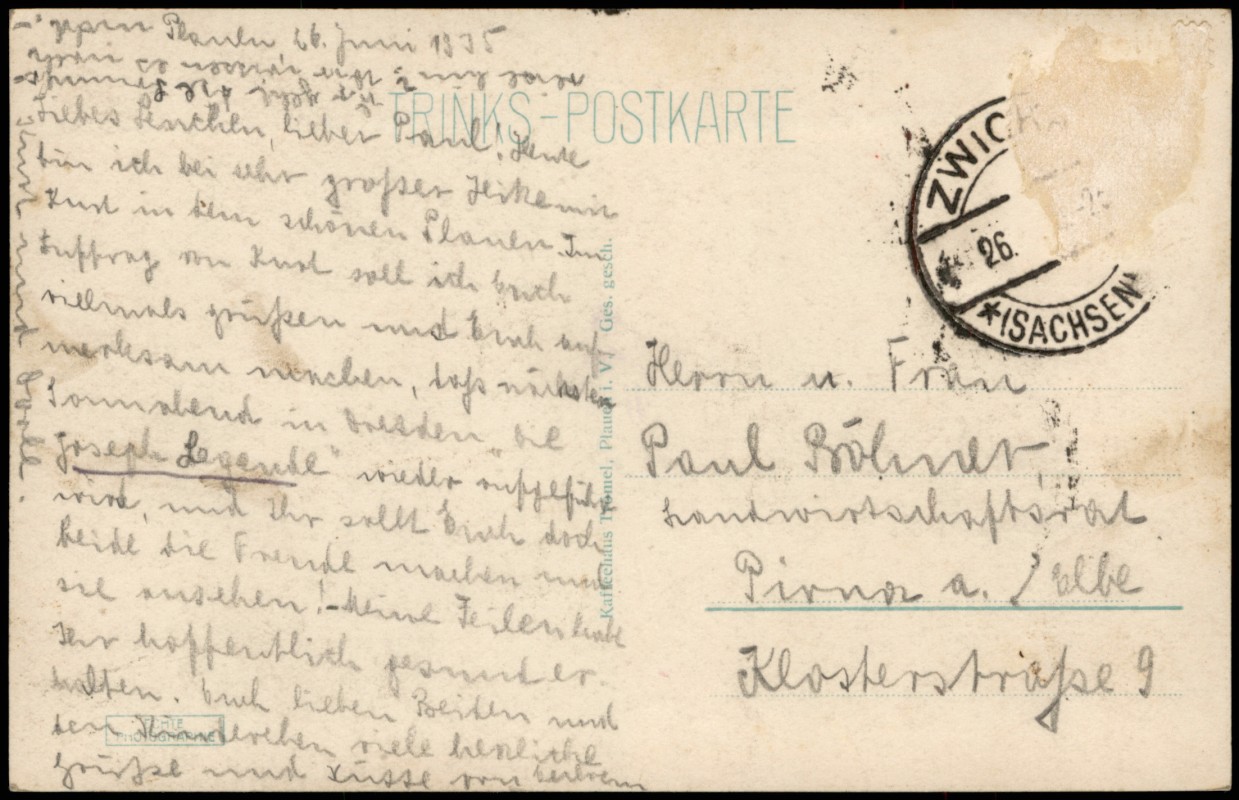 Plauen, 26. Juni 1935
Liebes Lenchen, lieber Paul! Heute
bin ich bei sehr großer Hitze mit
Kurt in dem schönen Plauen. Im
Auftrag von Kurt soll ich Euch
vielmals grüßen und Euch auf-
merksam machen, daß nächsten
Sonnabend in Dresden „die
Joseph Legende" wieder aufgeführt
wird, und Ihr sollt Euch doch
beide die Freude machen und
sie ansehen! - Meine Zeilen habt
Ihr hoffentlich gesund er-
halten. Euch lieben Beiden und
den viele herzliche
Grüße und Küsse von
TRINKS-POSTKARTE
Kaffeehaus Trömel, Plauen i. V. Ges. gesch.
ECHTE
PHOTOGRAPHIE
ZWICK
26.
*(SACHSEN)
Herrn u. Frau
Paul Böhner
Landwirtschaftsrat
Pirna a. / Elbe
Klosterstraße 9